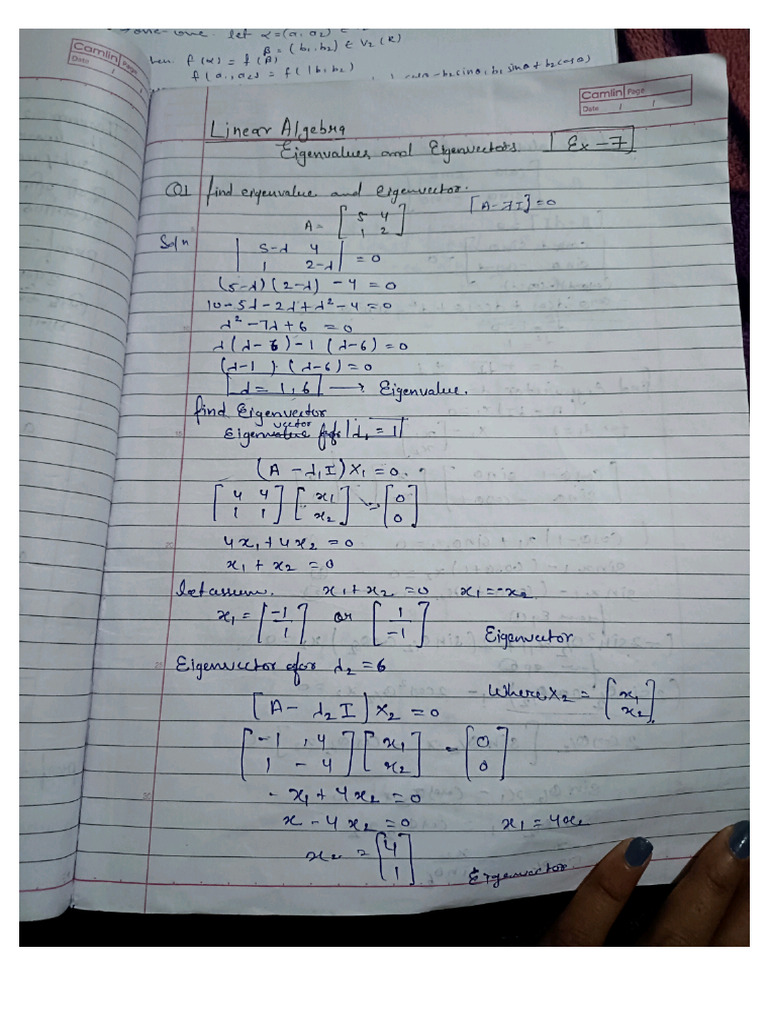 one-one. let α=(a₁ a₂) ∈
β = (b₁, b₂) ∈ V₂(R)
f(α) = f(β)
f(a₁, a₂) = f(b₁ b₂)
b₂ sinθ, b₁ sinθ + b₂ cosθ)
Camlin Page
Date / /
Camlin Page
Date / /
Linear Algebra
Eigenvalues and Eigenvectors Ex-7
Q1 find eigenvalue and eigenvector.
A = [5 4; 1 2] [A-7I]=0
Soln
|5-λ 4; 1 2-λ| = 0
(5-λ)(2-λ) - 4 = 0
10-5λ-2λ+λ²-4=0
λ²-7λ+6 =0
λ(λ-6)-1(λ-6)=0
(λ-1)·(λ-6)=0
λ = 1, 6 → Eigenvalue.
find Eigenvector
Eigenvector for λ₁ = 1
(A - λ₁I) X₁ = 0.
[4 4; 1 1] [x₁; x₂] = [0; 0]
4x₁+4x₂ = 0
x₁ + x₂ = 0
let assum. x₁+x₂ = 0 x₁=-x₂
x₁ = [-1; 1] or [1; -1] Eigenvector
Eigenvector for λ₂ = 6
[A - λ₂I) X₂ = 0 Where X₂ = [x₁; x₂]
[-1 , 4; 1 -4] [x₁; x₂] = [0; 0]
- x₁ + 4x₂ = 0
x - 4x₂ = 0 x₁ = 4x₂
x₂ = [4; 1] Eigenvector